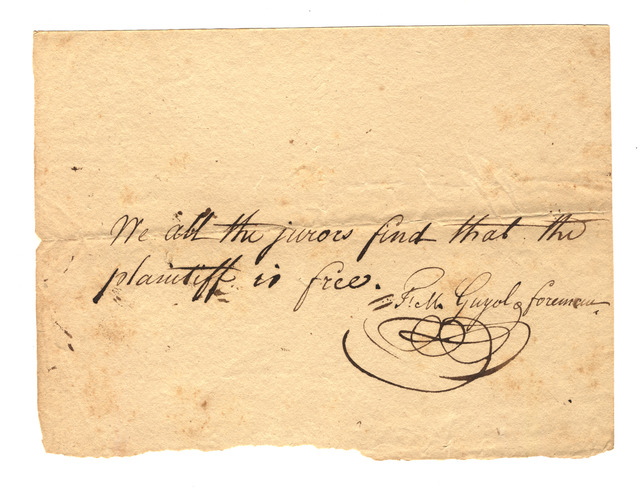 We all the jurors find that the
plaintiff is free.
F. M. Guyol foreman